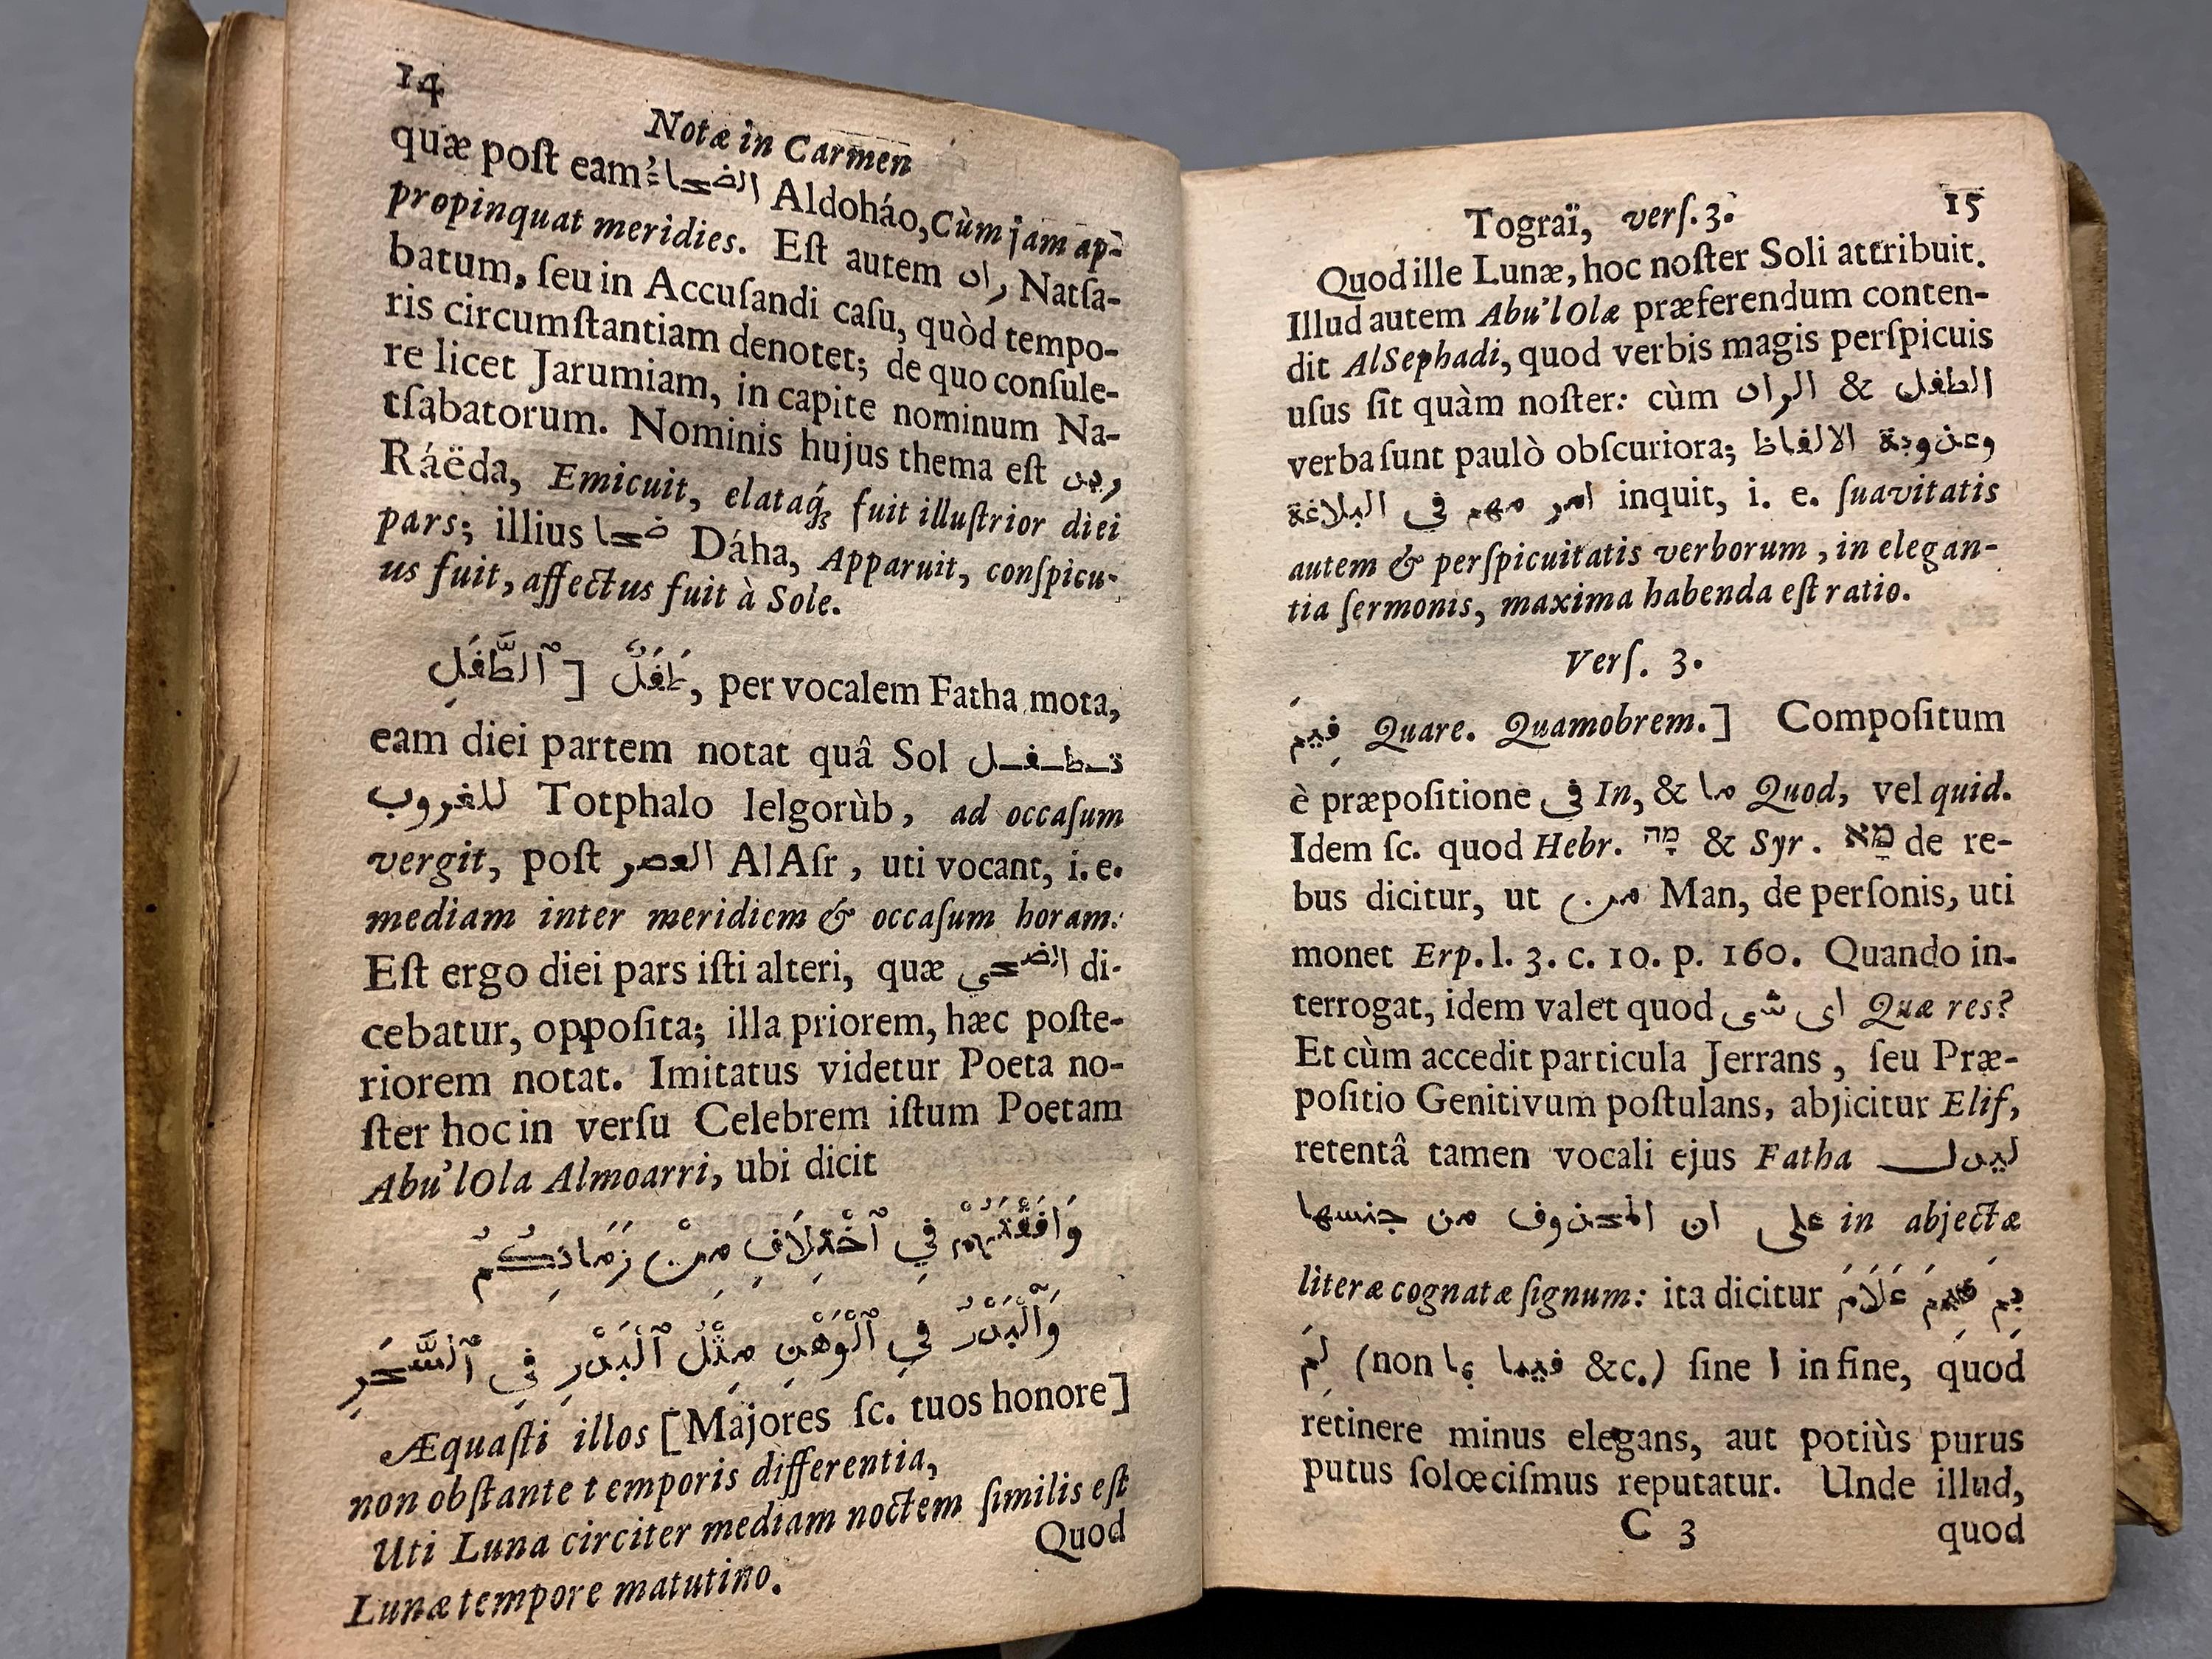 14
Notæ in Carmen
quæ poſt eam الضحاءُ Aldoháo, Cùm jam ap-
propinquat meridies. Eſt autem راد Natſa-
batum, ſeu in Accuſandi caſu, quòd tempo-
ris circumſtantiam denotet; de quo conſule-
re licet Jarumiam, in capite nominum Na-
tſabatorum. Nominis hujus thema eſt ريد
Ráëda, Emicuit, elataq́ꝫ fuit illuſtrior diei
pars; illius ضحا Dáha, Apparuit, conſpicu-
us fuit, affectus fuit à Sole.
ٱلطَّفَلِ ] طَفَلٌ, per vocalem Fatha mota,
eam diei partem notat quâ Sol تـطـفـل
للغروب Totphalo lelgorùb, ad occaſum
vergit, poſt العصر AlAſr, uti vocant, i. e.
mediam inter meridiem & occaſum horam:
Eſt ergo diei pars iſti alteri, quæ الضحى di-
cebatur, oppoſita; illa priorem, hæc poſte-
riorem notat. Imitatus videtur Poeta no-
ſter hoc in verſu Celebrem iſtum Poetam
Abu'lOla Almoarri, ubi dicit
وَافَقْتَهُمْ فِي ٱخْتِلَافٍ مِنْ زَمَانِكُمُ
وَٱلْبَدْرُ فِي ٱلْوَهْنِ مِثْلُ ٱلْبَدْرِ فِي ٱلسَّحَرِ
Æquaſti illos [Majores ſc. tuos honore]
non obſtante temporis differentia,
Uti Luna circiter mediam noctem ſimilis eſt
Lunæ tempore matutino.
Quod
Tograï, verſ. 3.
15
Quod ille Lunæ, hoc noſter Soli attribuit.
Illud autem Abu'lOlæ præferendum conten-
dit AlSephadi, quod verbis magis perſpicuis
uſus ſit quàm noſter: cùm الراد & الطفل
verba ſunt paulò obſcuriora; وعذوبة الالفاظ
امر مهم فى البلاغة inquit, i. e. ſuavitatis
autem & perſpicuitatis verborum, in elegan-
tia ſermonis, maxima habenda eſt ratio.
Verſ. 3.
فِيمَ Quare. Quamobrem.] Compoſitum
è præpoſitione في In, & ما Quod, vel quid.
Idem ſc. quod Hebr. מָה & Syr. מָא de re-
bus dicitur, ut من Man, de perſonis, uti
monet Erp. l. 3. c. 10. p. 160. Quando in-
terrogat, idem valet quod اى شى Quæ res?
Et cùm accedit particula Jerrans, ſeu Præ-
poſitio Genitivum poſtulans, abjicitur Elif,
retentâ tamen vocali ejus Fatha ليدل
على ان المحذوف من جنسها in abjectæ
literæ cognatæ ſignum: ita dicitur بِمَ فِيمَ عَلَامَ
لِمَ (non بما فيما &c.) ſine ا in fine, quod
retinere minus elegans, aut potiùs purus
putus ſolœciſmus reputatur. Unde illud,
C 3
quod